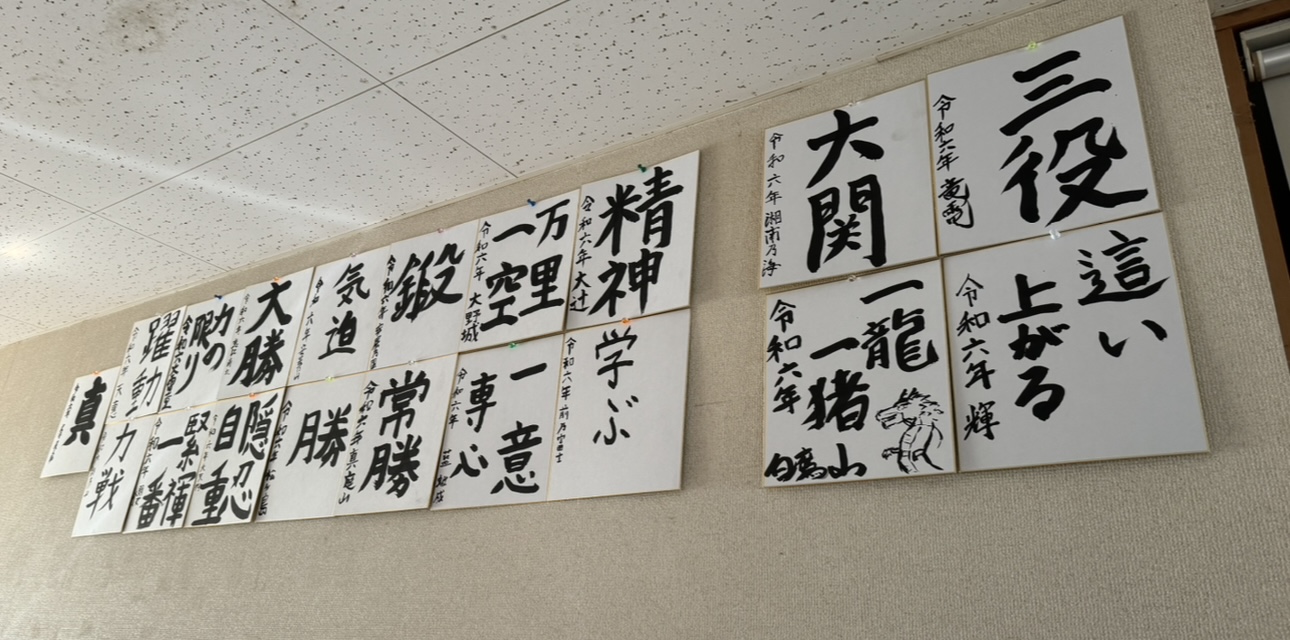 三役
令和六年 竜電
這い
上がる
令和六年 輝
大関
令和六年 湘南乃海
一龍
一猪
令和六年
白鷹山
精神
令和六年 大辻
学ぶ
令和六年
万里
一空
令和六年 大野城
一意
専心
令和六年
鍛
常勝
令和六年 真庭山
気迫
令和六年
勝
大勝
隠忍
自重
力の
限り
緊褌
一番
躍動
力戦
真